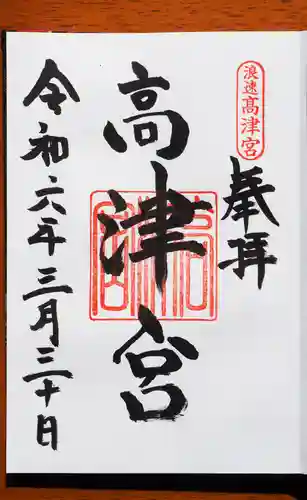 浪速高津宮
奉拝
高津宮
令和六年三月三十日